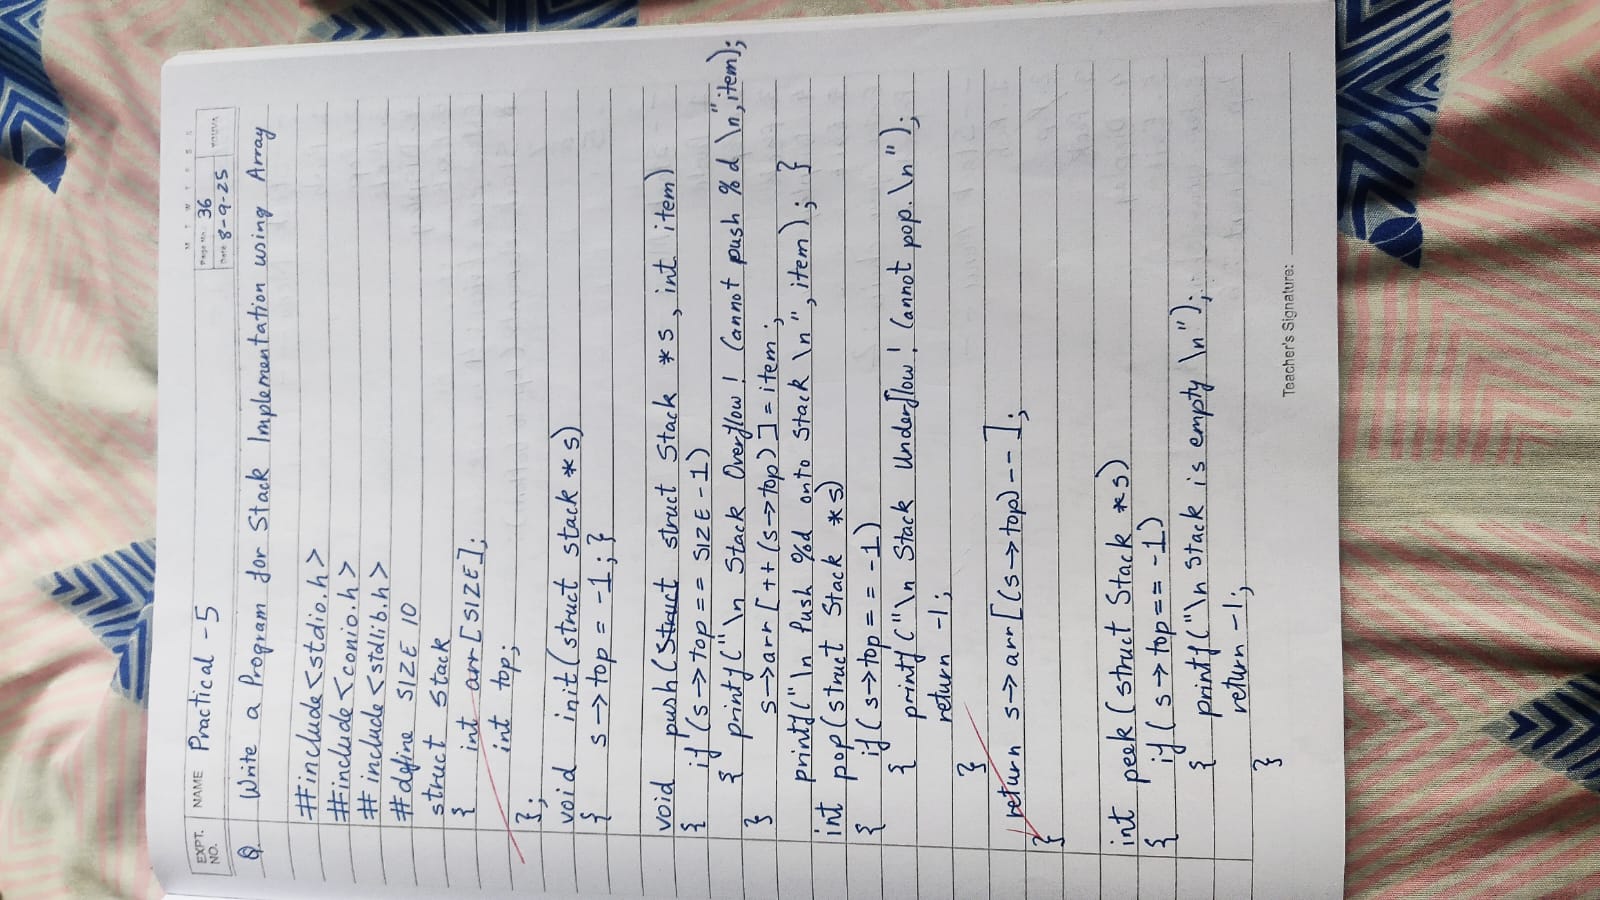 M T W T F S S
EXPT. NO. NAME Practical - 5
Page No. 36
Date 8-9-25
Q. Write a Program for Stack Implementation using Array
#include<stdio.h>
#include<conio.h>
# include<stdlib.h>
#define SIZE 10
struct Stack
{ int arr[SIZE];
int top;
};
void init(struct stack *s)
{ s→top = -1; }
void push(Struct struct Stack *s, int item)
{ if (s→top == SIZE -1)
{ printf("\n Stack Overflow! Cannot push %d \n",item);
} s→arr [++(s→top)] = item ;
printf("\n Push %d onto Stack \n", item); }
int pop(struct Stack *s)
{ if( s→top = = -1)
{ printf("\n Stack Underflow! Cannot pop. \n");
return -1;
}
return s→arr[(s→top)--];
}
int peek (struct Stack *s)
{ if( s→top== -1)
{ printf("\n Stack is empty \n");
return -1;
}
Teacher's Signature: